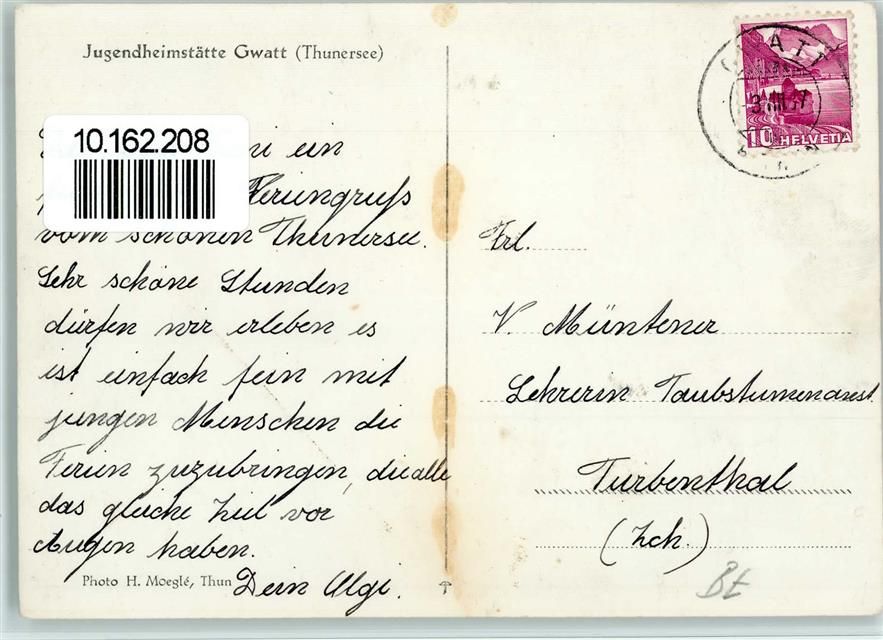 Jugendheimstätte Gwatt (Thunersee)
10.162.208
ein
Feriengruss
vom schönen Thunersee.
Sehr schöne Stunden
dürfen wir erleben es
ist einfach fein mit
jungen Menschen die
Ferien zuzubringen, die alle
das gleiche Ziel vor
Augen haben.
Dein Algi.
Photo H. Moeglé, Thun
GWATT
10 HELVETIA
Frl.
V. Müntener
Lehrerin Taubstumenanst.
Turbenthal
(Zch.)
BE